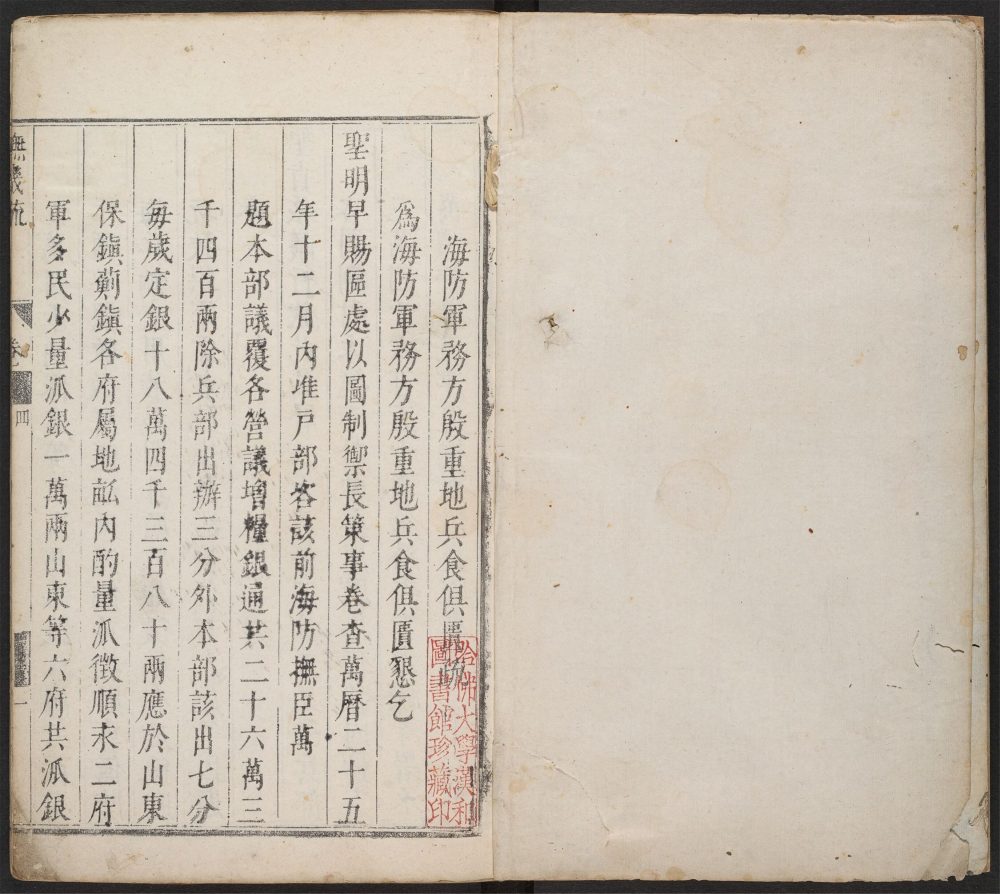 海防軍務方殷重地兵食俱匱疏
爲海防軍務方殷重地兵食俱匱懇乞
聖明早賜區處以圖制禦長策事卷查萬曆二十五
年十二月內准戶部咨該前海防撫臣萬
題本部議覆各營議增糧銀通共二十六萬三
千四百兩除兵部出辦三分外本部該出七分
每歲定銀十八萬四千三百八十兩應於山東
保鎭薊鎭各府屬地畝內酌量派徴順永二府
軍多民少量派銀一萬兩山東等六府共派銀
撫畿疏
卷
四
一
哈佛大學漢和
圖書館珍藏印